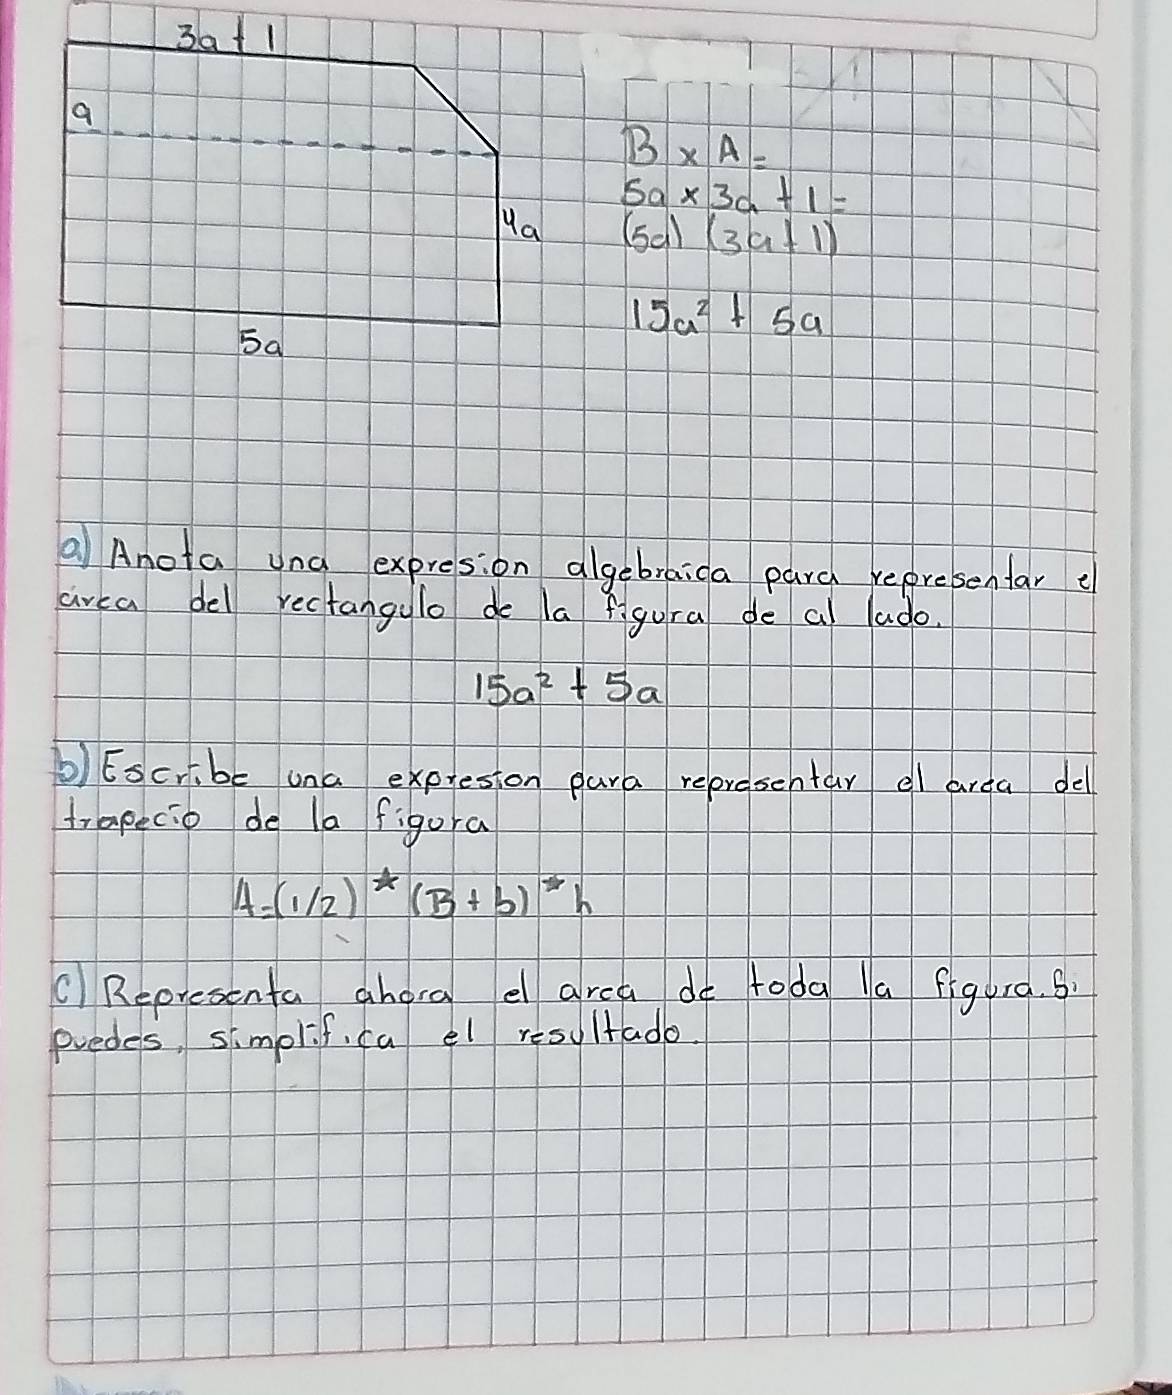 3a + 1
a
4a
5a
B x A =
5a x 3a + 1 =
(5a) (3a + 1)
15a² + 5a
a) Anota una expresion algebraica para representar el
area del rectangulo de la figura de al lado.
15a² + 5a
b) Escribe una expresion para representar el area del
trapecio de la figura
A=(1/2) * (B + b) * h
c) Representa ahora el area de toda la figura. Si
puedes, simplifica el resultado.